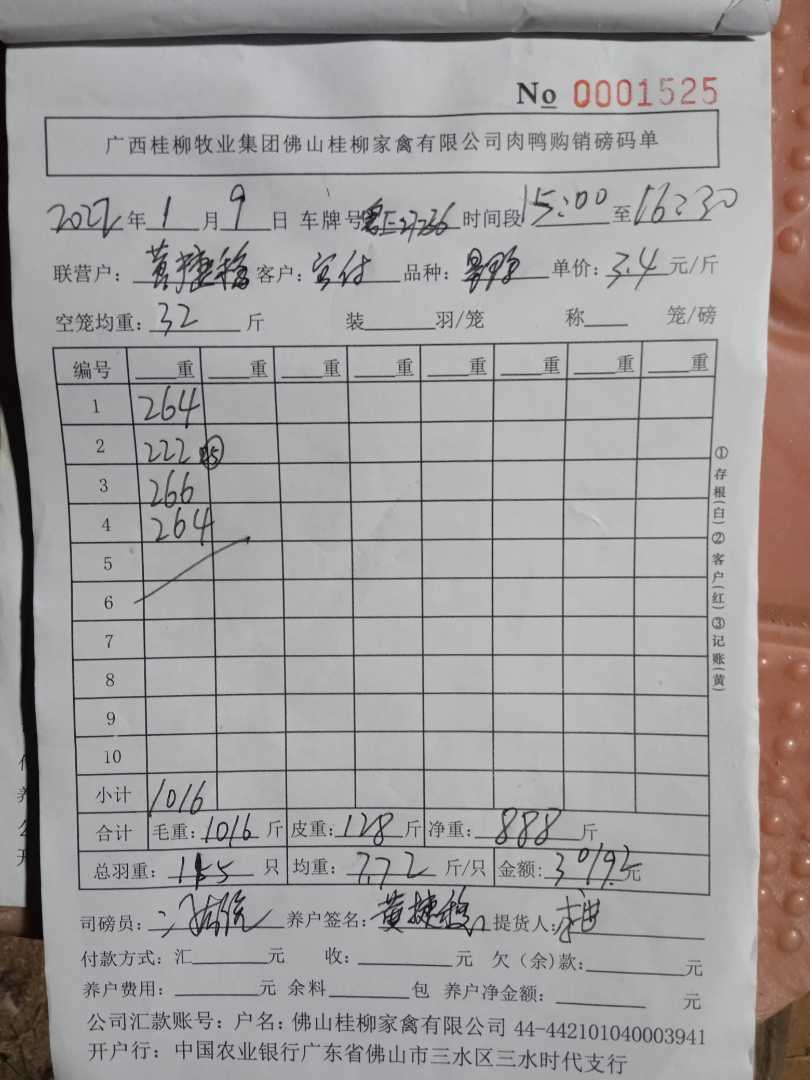 No 0001525
广西桂柳牧业集团佛山桂柳家禽有限公司肉鸭购销磅码单
2022年1月9日 车牌号 时间段15:00至16:30
联营户:黄捷稳 客户: 品种: 单价:3.4元/斤
空笼均重:32斤 装 羽/笼 称 笼/磅
编号 重 重 重 重 重 重 重 重
1 264
2 222
3 266
4 264
5
6
7
8
9
10
小计 1016
合计 毛重:1016斤 皮重:128斤 净重:888斤
总羽重:115只 均重:7.72斤/只 金额:3019.2元
司磅员: 养户签名:黄捷稳 提货人:
付款方式:汇 元 收: 元 欠(余)款: 元
养户费用: 元 余料 包 养户净金额: 元
公司汇款账号:户名:佛山桂柳家禽有限公司 44-442101040003941
开户行:中国农业银行广东省佛山市三水区三水时代支行
①存根(白)②客户(红)③记账(黄)